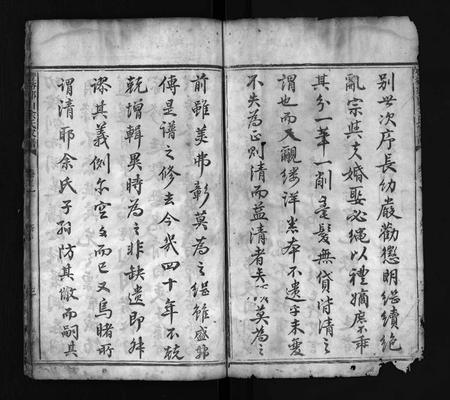 别世次序長幼嚴勸懲明繼續絕
亂宗與夫婚娶必繩以禮嫡庶不乖
其分一筆一削毫髮無貸皆清之
謂也而又覼縷詳悉本不遺乎末變
不失為正則清而益清者矣以莫為之
前雖美弗彰莫為之繼雖盛弗
傳是譜之修去今幾四十年不兢
兢增輯異時為之非缺遺即舛
謬其義例亦空文而已又烏睹所
謂清耶余氏子孫防其散而嗣其